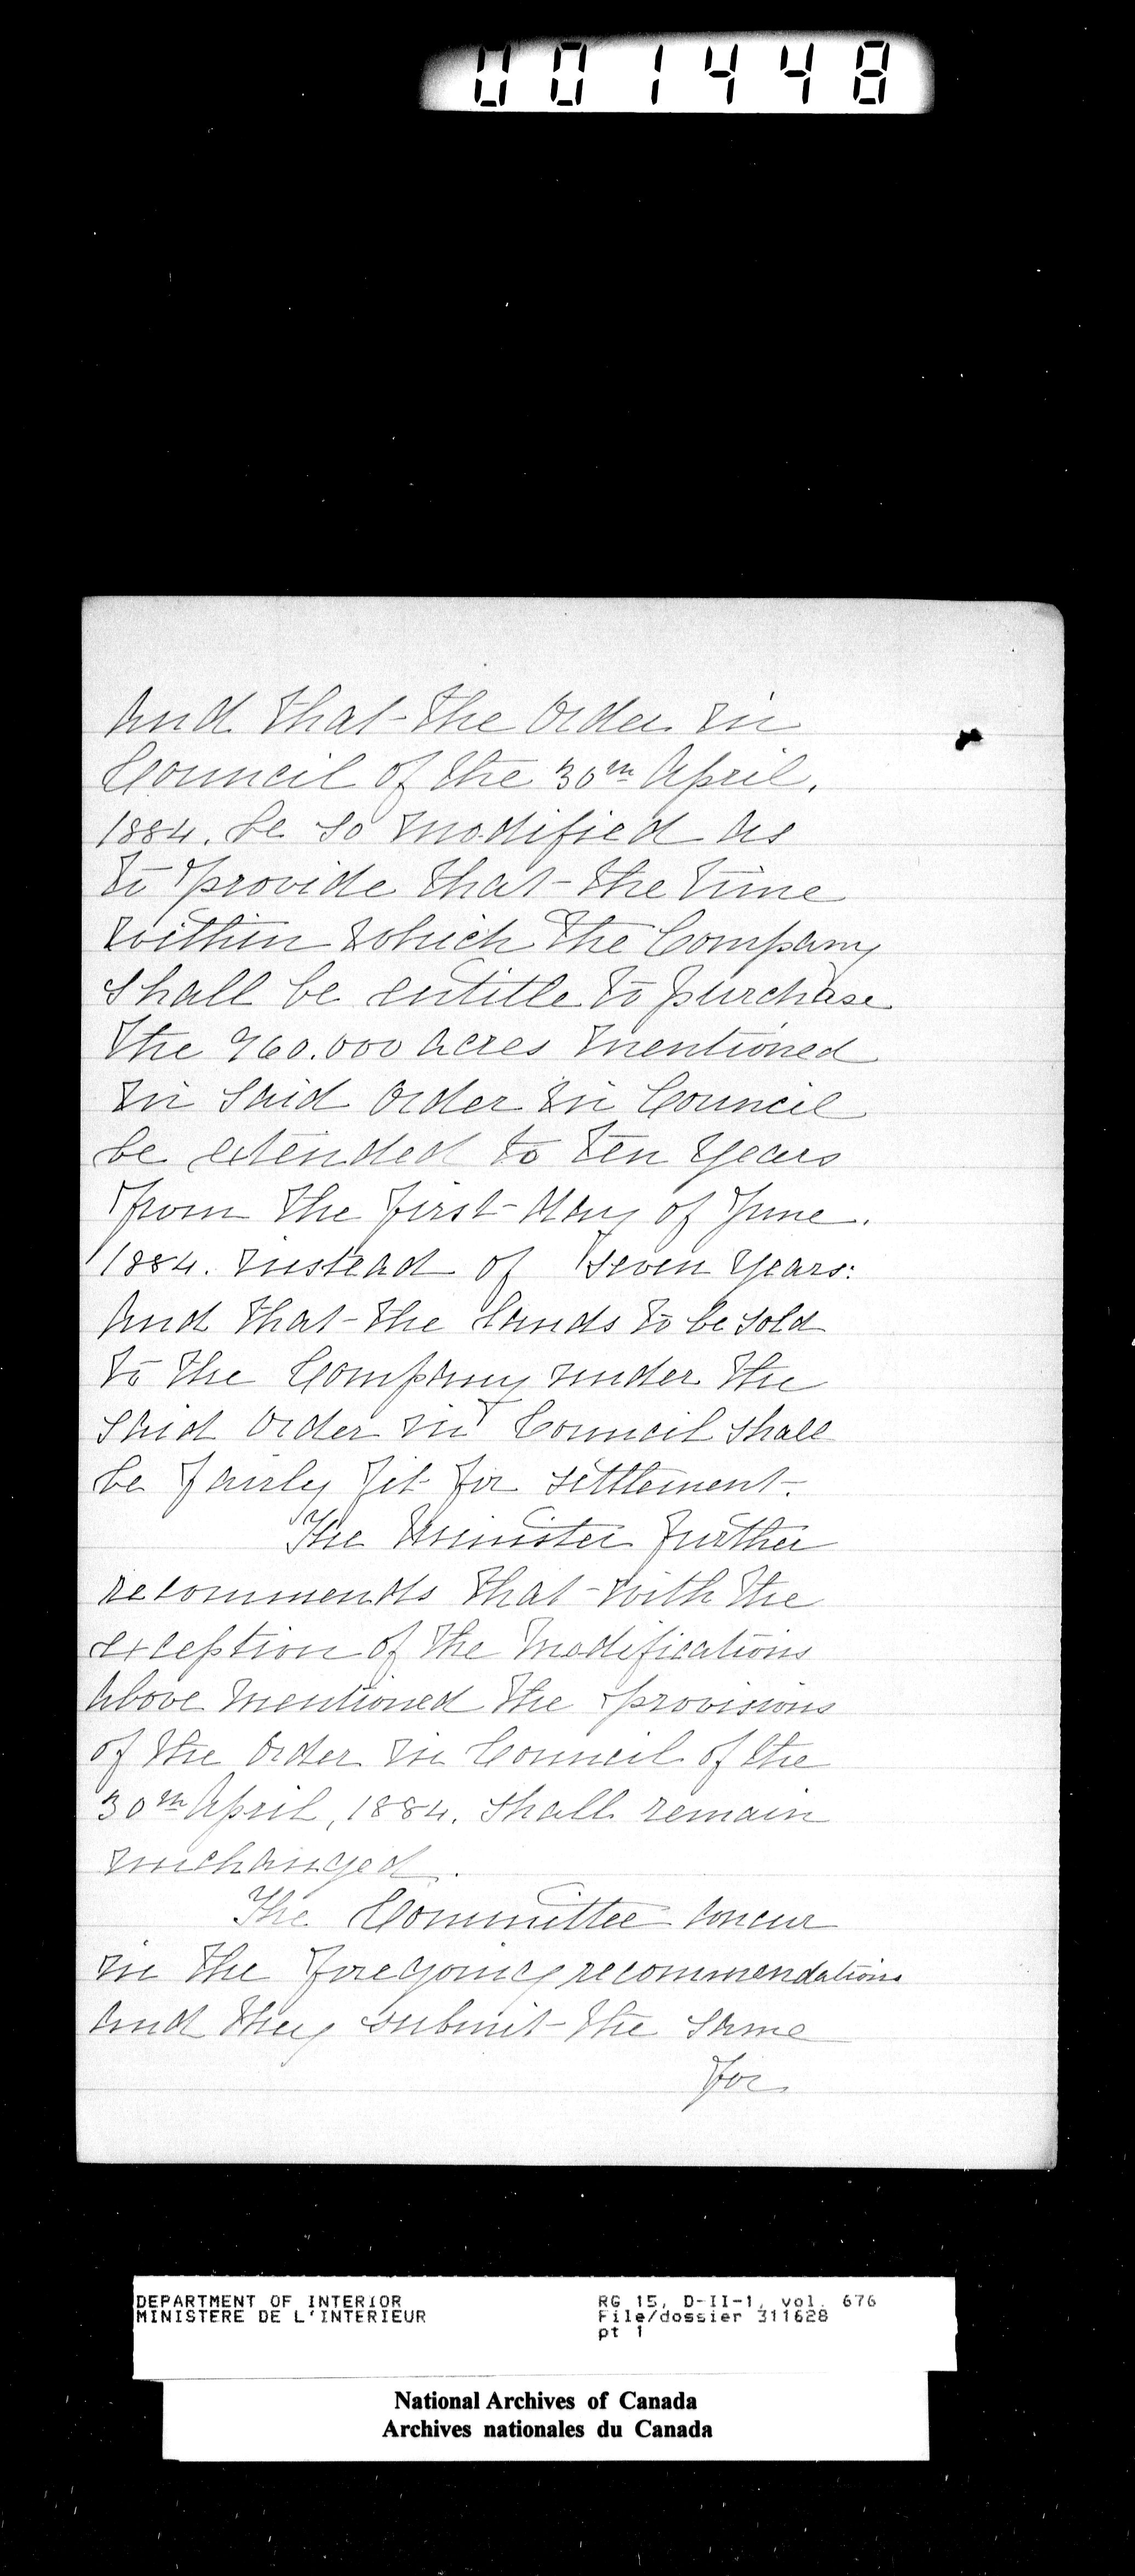 001448
And that the Order in
Council of the 30th April,
1884. be so modified as
to provide that the time
within which the Company
shall be entitle to purchase
the 960.000 acres mentioned
in said Order in Council
be extended to ten years
from the first day of June.
1884. instead of seven years:
And that the lands to be sold
to the Company under the
said Order in Council shall
be fairly fit for settlement.
The Minister further
recommends that with the
exception of the modifications
above mentioned the provisions
of the Order in Council of the
30th April, 1884. shall remain
unchanged.
The Committee concur
in the foregoing recommendations
and they submit the same
for
DEPARTMENT OF INTERIOR
MINISTERE DE L'INTERIEUR
RG 15, D-II-1, vol. 676
File/dossier 311628
pt 1
National Archives of Canada
Archives nationales du Canada